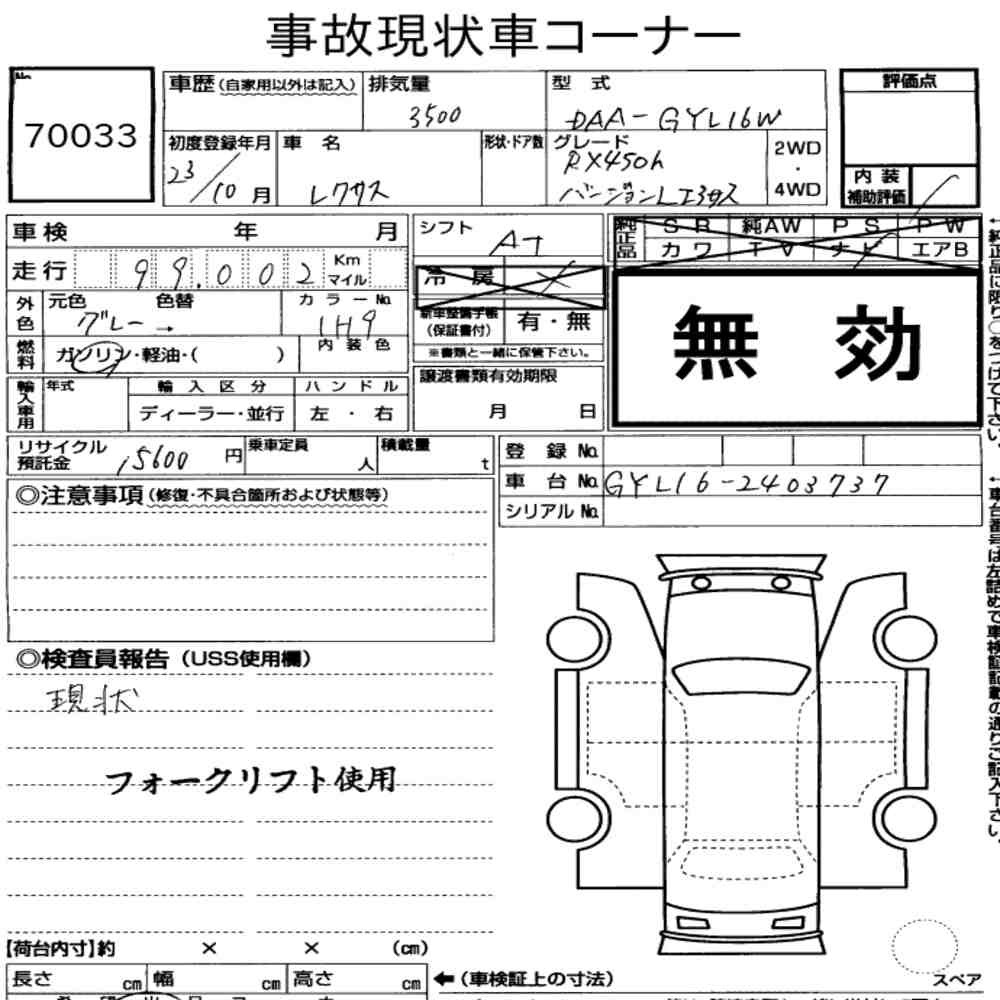 事故現状車コーナー
No.
70033
車歴(自家用以外は記入)
排気量
3500
型 式
DAA-GYL16W
評価点
初度登録年月
23/10月
車 名
レクサス
形状・ドア数
グレード
RX450h
バージョンL
2WD
・
4WD
内 装
補助評価
車検 年 月
走行 99,002 Km
マイル
シフト
AT
純正品
SR 純AW PS PW
カワ TV ナビ エアB
冷 房
外色
元色 色替
グレー→
カラーNo.
1H9
新車整備手帳
(保証書付)
有・無
無 効
燃料
ガソリン・軽油・( )
内装色
※書類と一緒に保管下さい。
輸入車用
年式
輸入区分
ハンドル
ディーラー・並行
左 ・ 右
譲渡書類有効期限
月 日
リサイクル
預託金
15600 円
乗車定員
人
積載量
t
登 録 No.
車 台 No. GYL16-2403737
シリアル No.
◎注意事項(修復・不具合箇所および状態等)
◎検査員報告(USS使用欄)
現状
フォークリフト使用
←純正品に限り○をつけて下さい。
←車台番号は左詰めで車検証記載の通りご記入下さい。
【荷台内寸】約 × × (cm)
長さ cm 幅 cm 高さ cm
←(車検証上の寸法)
スペア